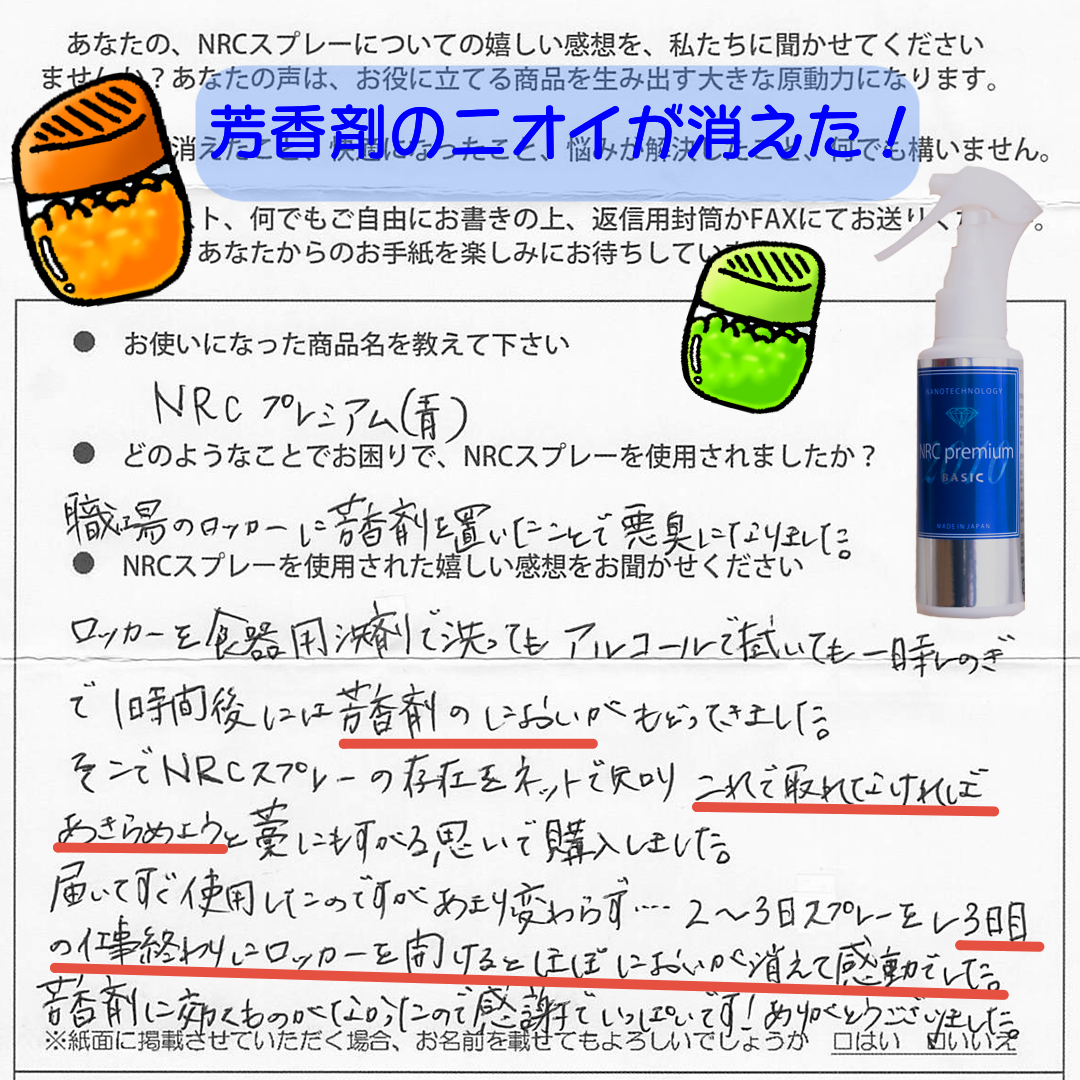 あなたの、NRCスプレーについての嬉しい感想を、私たちに聞かせてください
ませんか？あなたの声は、お役に立てる商品を生み出す大きな原動力になります。
芳香剤のニオイが消えた！
消えたこと、快適になったこと、悩みが解決したこと、何でも構いません。
ト、何でもご自由にお書きの上、返信用封筒かFAXにてお送りください。
あなたからのお手紙を楽しみにお待ちしてい
● お使いになった商品名を教えて下さい
NRC プレミアム(青)
● どのようなことでお困りで、NRCスプレーを使用されましたか？
職場のロッカーに芳香剤を置いたことで悪臭になりました。
● NRCスプレーを使用された嬉しい感想をお聞かせください
ロッカーを食器用洗剤で洗ってもアルコールで拭いても一時しのぎ
で1時間後には芳香剤のにおいがもどってきました。
そこでNRCスプレーの存在をネットで知り これで取れなければ
あきらめようと藁にもすがる思いで購入しました。
届いてすぐ使用したのですがあまり変わらず… 2〜3日スプレーをし3日目
の仕事終わりにロッカーを開けるとほぼにおいが消えて感動でした。
芳香剤に効くものがなかったので感謝でいっぱいです！ありがとうございました。
※紙面に掲載させていただく場合、お名前を載せてもよろしいでしょうか □はい ☑いいえ
NANOTECHNOLOGY
NRC premium
BASIC
MADE IN JAPAN